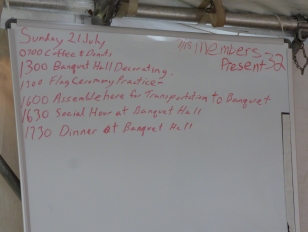 Sunday 21 July
0700 Coffee & Donuts
1300 Banquet Hall Decorating.
1300 Flag Ceremony Practice
1600 Assemble here for Transportation to Banquet
1630 Social Hour at Banquet Hall
1730 Dinner at Banquet Hall
Members
Present 32